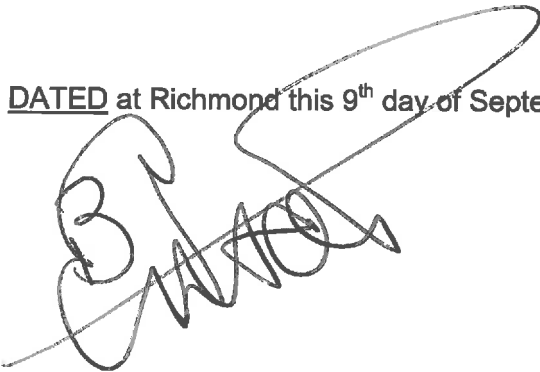 DATED at Richmond this 9th day of Septe